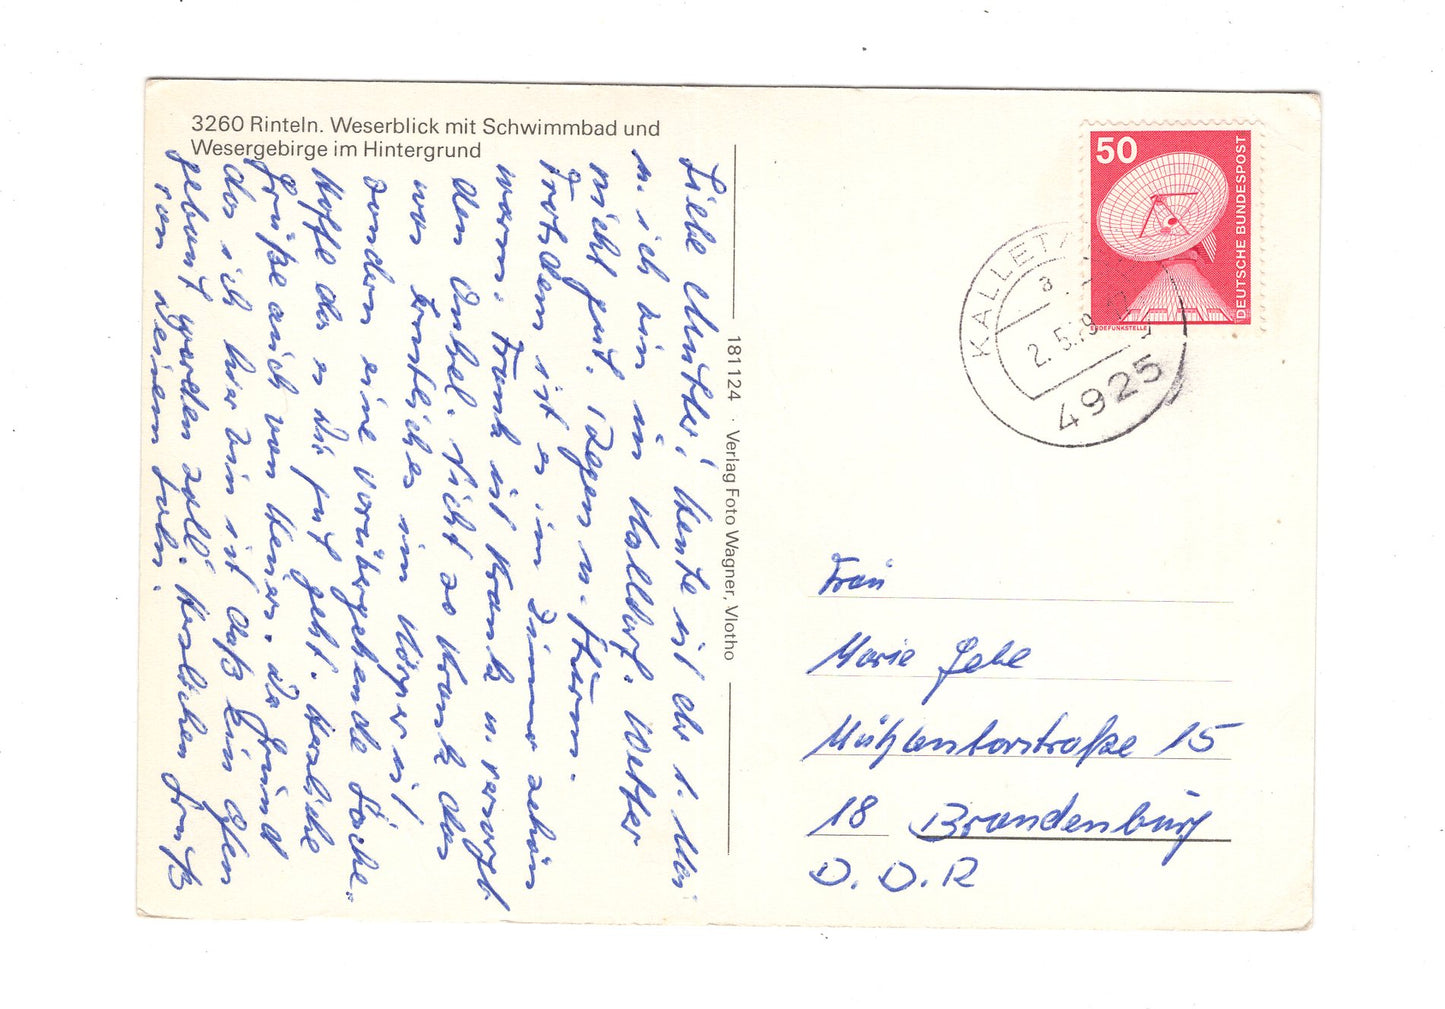 3260 Rinteln. Weserblick mit Schwimmbad und
Wesergebirge im Hintergrund
Liebe Mutter! Heute ist der 1. Mai
u. ich bin in Kalldorf. Wetter
nicht gut. Regen u. Sturm.
Trotsdem ist es im Zimmer schön
warm. Frank ist krank u. versorgt
den Onkel. Nicht so krank das
was Ernstliches im Körper ist
sondern eine vorübergehende Sache.
Hoffe das es Dir gut geht. Herzliche
Grüße auch von Heiner. Der Grund
das ich hier bin ist daß ein Ofen
gebaut werden soll. Herzlichen Gruß
von Deinem Sohn.
181124 · Verlag Foto Wagner, Vlotho
50
DEUTSCHE BUNDESPOST
ERDEFUNKSTELLE
KALLETAL
a
2.5.79
4925
Frau
Marie
Mühlentorstraße 15
18 Brandenburg
D.D.R